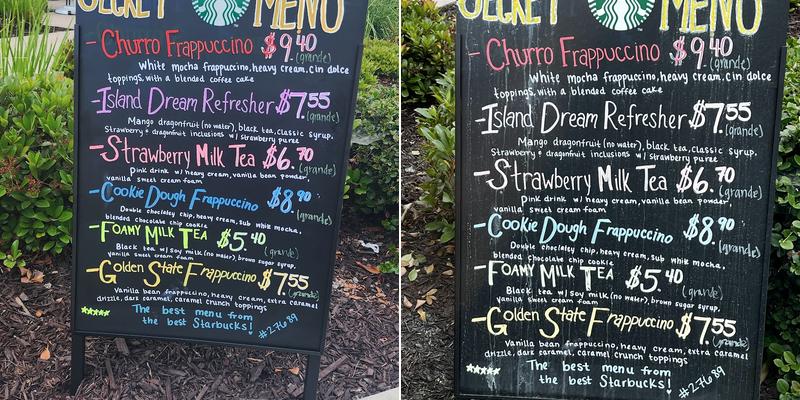 SECRET MENU
- Churro Frappuccino $9.40 (grande)
White mocha frappuccino, heavy cream, cin dolce
toppings, with a blended coffee cake
- Island Dream Refresher $7.55 (grande)
Mango dragonfruit (no water), black tea, classic syrup,
Strawberry + dragonfruit inclusions w/ strawberry puree
- Strawberry Milk Tea $6.70 (grande)
Pink drink w/ heavy cream, vanilla bean powder,
vanilla sweet cream foam
- Cookie Dough Frappuccino $8.90 (grande)
Double chocley chip, heavy cream, sub white mocha,
blended chocolate chip cookie
- Foamy Milk Tea $5.40 (grande)
Black tea w/ soy milk (no water), brown sugar syrup,
vanilla sweet cream foam
- Golden State Frappuccino $7.55 (grande)
Vanilla bean frappuccino, heavy cream, extra caramel
drizzle, dark caramel, caramel crunch toppings
The best menu from
the best Starbucks!
#27689
SECRET MENU
- Churro Frappuccino $9.40 (grande)
White mocha frappuccino, heavy cream, cin dolce
toppings, with a blended coffee cake
- Island Dream Refresher $7.55 (grande)
Mango dragonfruit (no water), black tea, classic syrup,
Strawberry + dragonfruit inclusions w/ strawberry puree
- Strawberry Milk Tea $6.70 (grande)
Pink drink w/ heavy cream, vanilla bean powder,
vanilla sweet cream foam
- Cookie Dough Frappuccino $8.90 (grande)
Double chocley chip, heavy cream, sub white mocha,
blended chocolate chip cookie
- Foamy Milk Tea $5.40 (grande)
Black tea w/ soy milk (no water), brown sugar syrup,
vanilla sweet cream foam
- Golden State Frappuccino $7.55 (grande)
Vanilla bean frappuccino, heavy cream, extra caramel
drizzle, dark caramel, caramel crunch toppings
The best menu from
the best Starbucks!
#27689